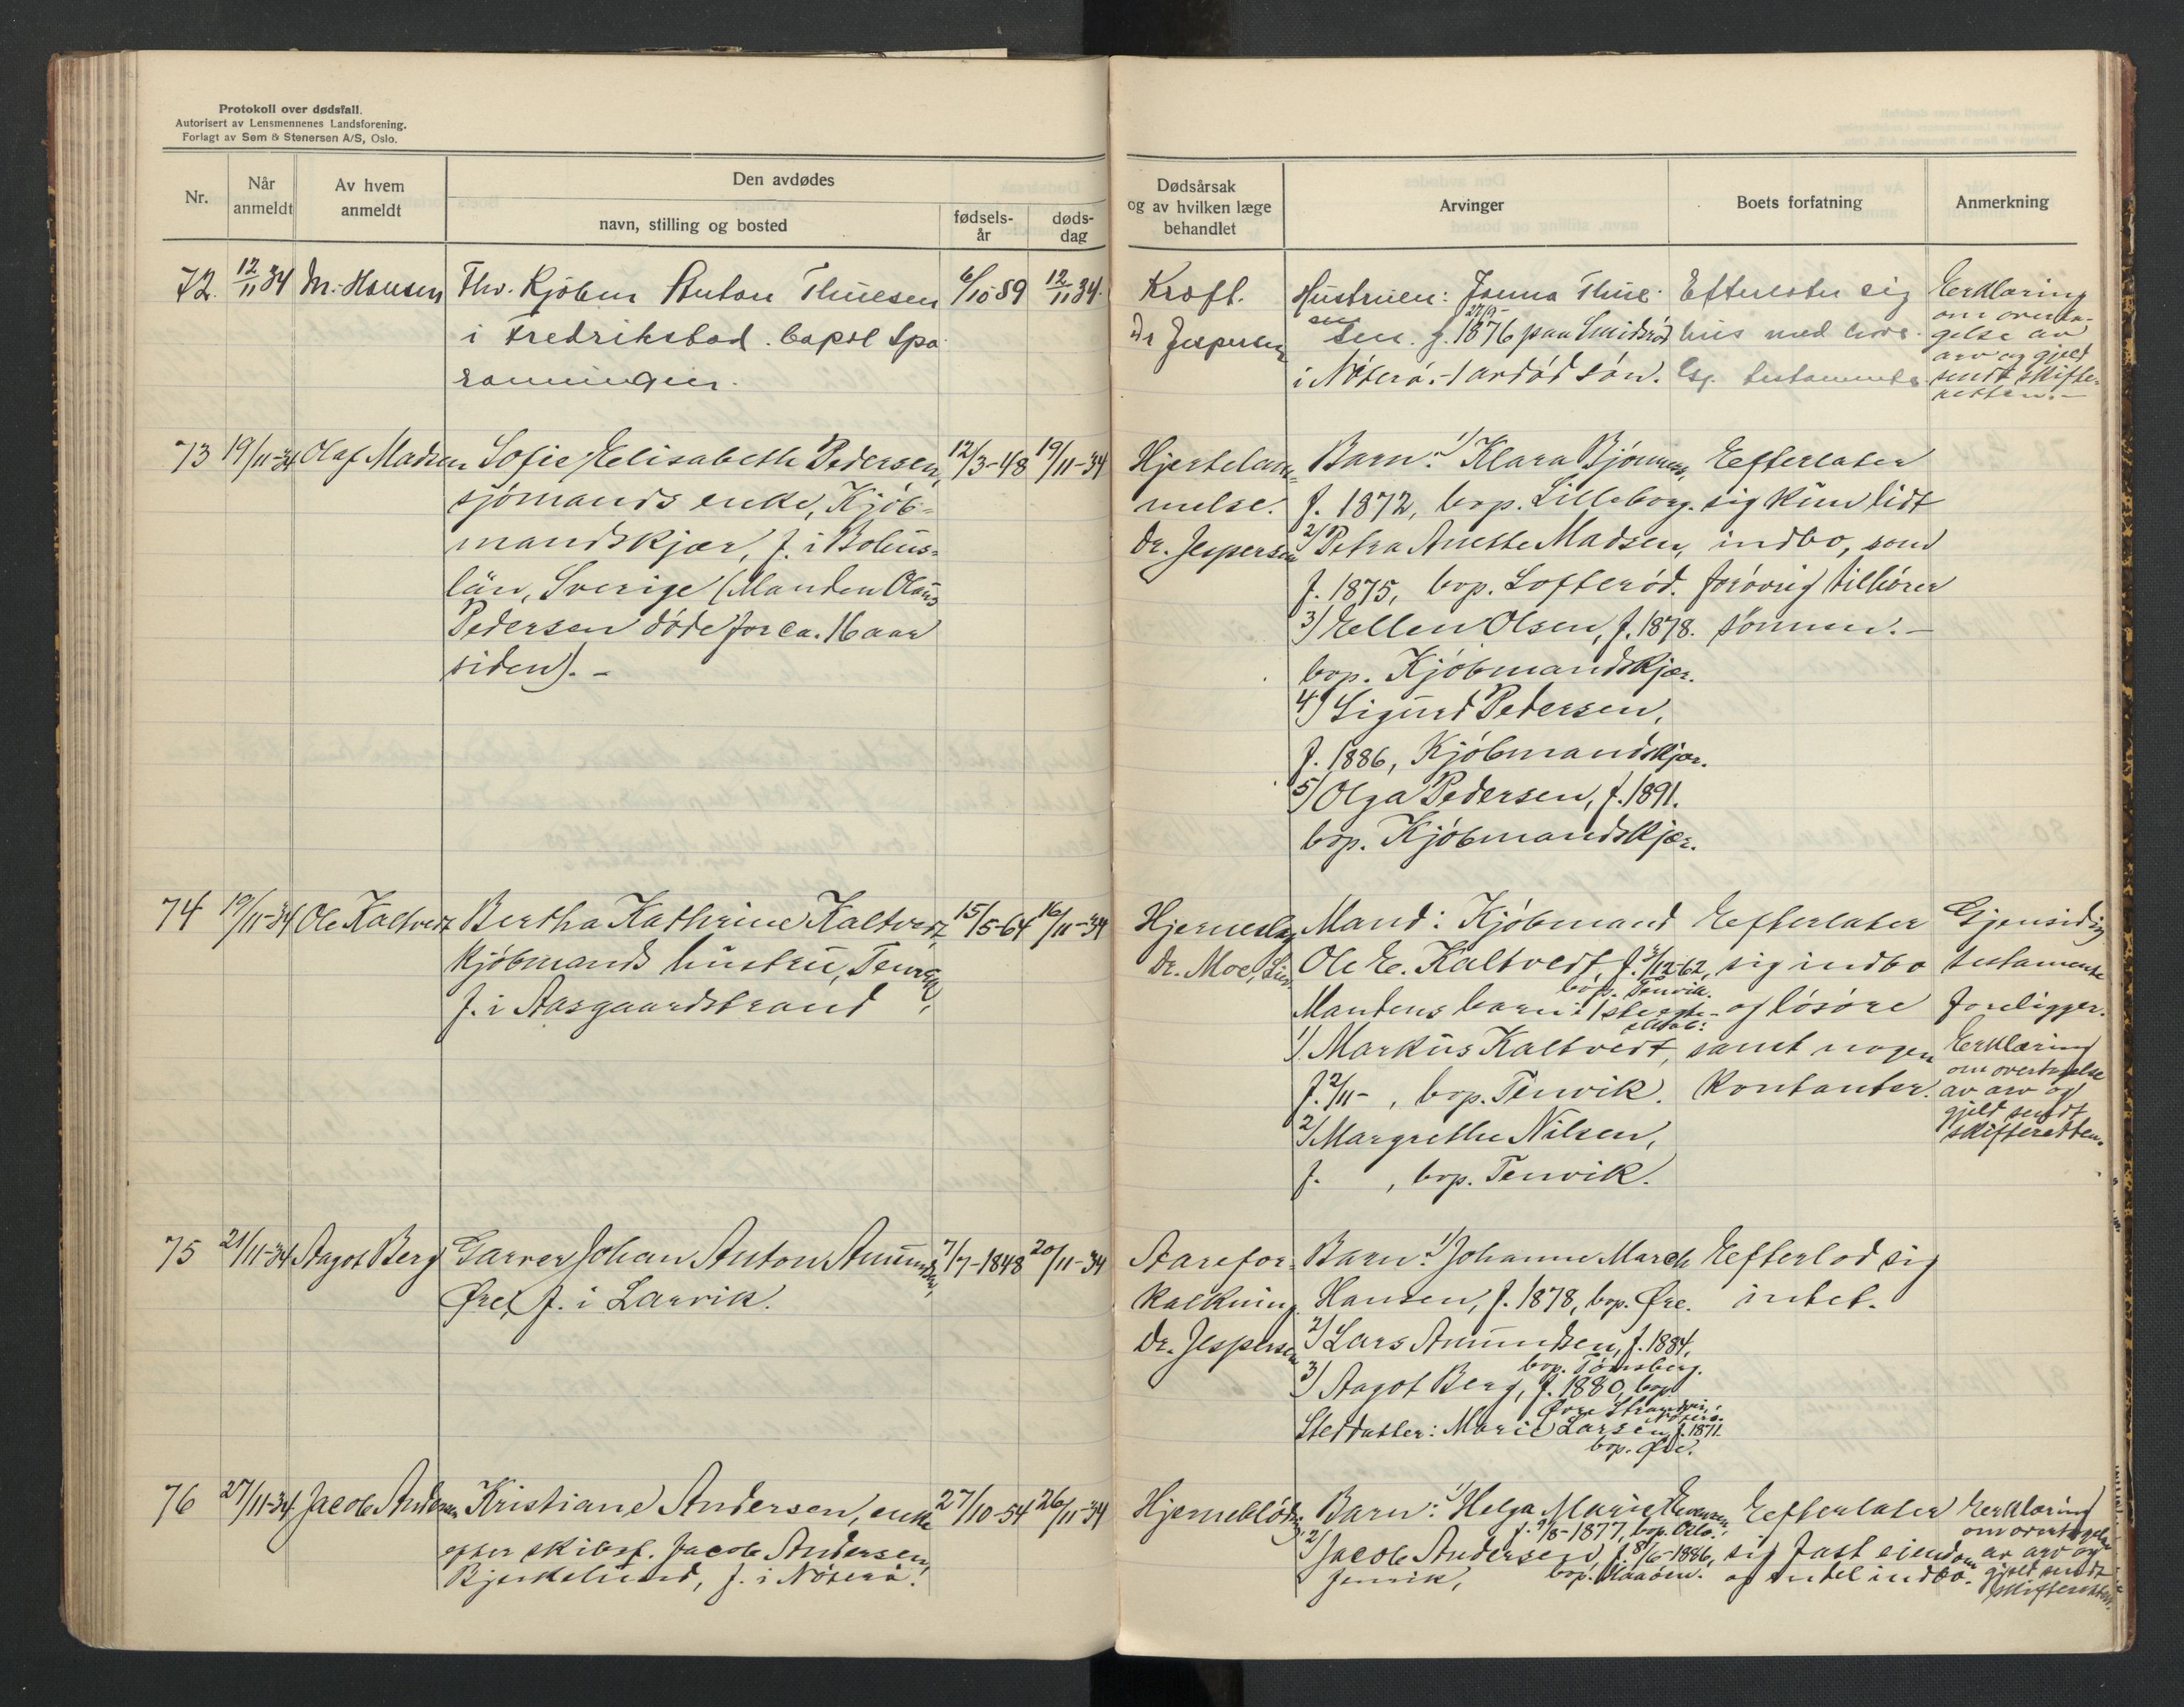 Protokoll over dødsfall.
Autorisert av Lensmennenes Landsforening.
Forlagt av Sem & Stenersen A/S, Oslo.
Nr.
Når anmeldt
Av hvem anmeldt
Den avdødes
navn, stilling og bosted
fødsels-år
døds-dag
Dødsårsak og av hvilken læge behandlet
Arvinger
Boets forfatning
Anmerkning
72. 12/11 34 M. Hansen Fhv. Kjöbm Anton Thuesen 6/10 59 12/11 34.
i Fredrikstad.
Kræft.
Dr Jespersen
Hustruen: Janna Thue-
sen. f. 27/9- 1876 paa Smidsröd
i Nöterö. - 1 avdöd sön.
Efterlater sig
hus med
testamente
Erklæring
om overta-
gelse av
arv og gjeld
sendt skifte-
retten. -
73 19/11-34 Olaf Madsen Sofie Elisabeth Pedersen, 12/3-48 19/11-34
sjömands enke, Kjöb-
mandskjær, f. i Bohus-
län, Sverige (Manden Olaus
Pedersen döde for ca. 16 aar
siden). -
Hjertelam-
melse.
Dr. Jespersen
Barn: 1) Klara Bjönnes,
f. 1872, bop. Lilleborg.
2) Petra Anette Madsen,
f. 1875, bop. Lofteröd.
3) Ellen Olsen, f. 1878.
bop. Kjöbmandskjær.
4) Sigurd Pedersen,
f. 1886, Kjöbmandskjær.
5) Olga Pedersen, f. 1891.
bop. Kjöbmandskjær.
Efterlater
sig kun lidt
indbo, som
forövrig tilhörer
sönnen. -
74 19/11-34 Ole Kaltvedt Bertha Kathrine Kaltvedt, 15/5-64 16/11-34
Kjöbmands hustru, Tenvik,
f. i Aasgaardstrand
Hjerneslag
Dr. Moe,
Mand: Kjöbmand
Ole E. Kaltvedt, f. 3/12-62,
bop. Tenvik.
Mandens barn i 1ste egte-
skab:
1) Markus Kaltvedt,
f. 2/11- , bop. Tenvik.
2) Margrethe Nilsen,
f. , bop. Tenvik.
Efterlater
sig indbo
og lösöre
samt nogen
kontanter.
Gjensidig
testamente
foreligger.
Erklæring
om overtagelse
av arv og
gjeld sendt
skifteretten.
75 21/11-34 Aagot Berg Garver Johan Anton Amundsen, 7/7-1848 20/11-34
Øre, f. i Larvik.
Aarefor-
kalkning
Dr. Jespersen
Barn: 1) Johanne March
Hansen, f. 1878, bop. Øre.
2) Lars Amundsen, f. 1884,
bop. Tönsberg.
3) Aagot Berg, f. 1880, bop.
Øvre Strandvei, Nöterö.
Steddatter: Marie Larsen, f. 1871.
bop. Øre.
Efterlod sig
intet.
76 27/11-34 Jacob Andersen Kristiane Andersen, enke 27/10-54 26/11-34
efter skibsf. Jacob Andersen,
Bjerkelund, f. i Nöterö.
Hjerneblödn.
Barn: 1) Helga Marie
f. 9/8-1877, bop. Oslo.
2) Jacob Andersen, f. 8/6-1886,
Efterlater
sig fast eiendom
og endel indbo.
Erklæring
om overtagelse
av arv og
gjeld sendt
skifteretten.